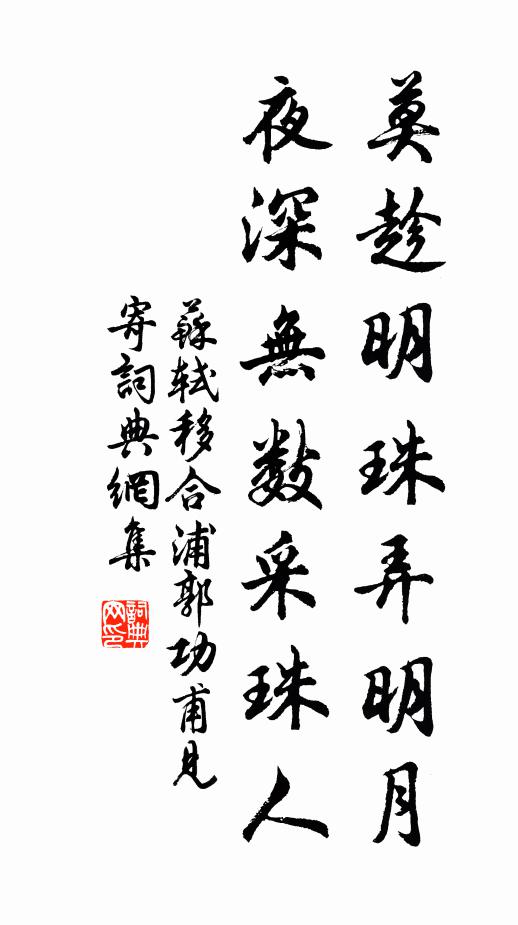 莫趁明珠弄明月
夜深無數采珠人
蘇軾移合浦郭功甫見
寄詞典網集
詞典
网印